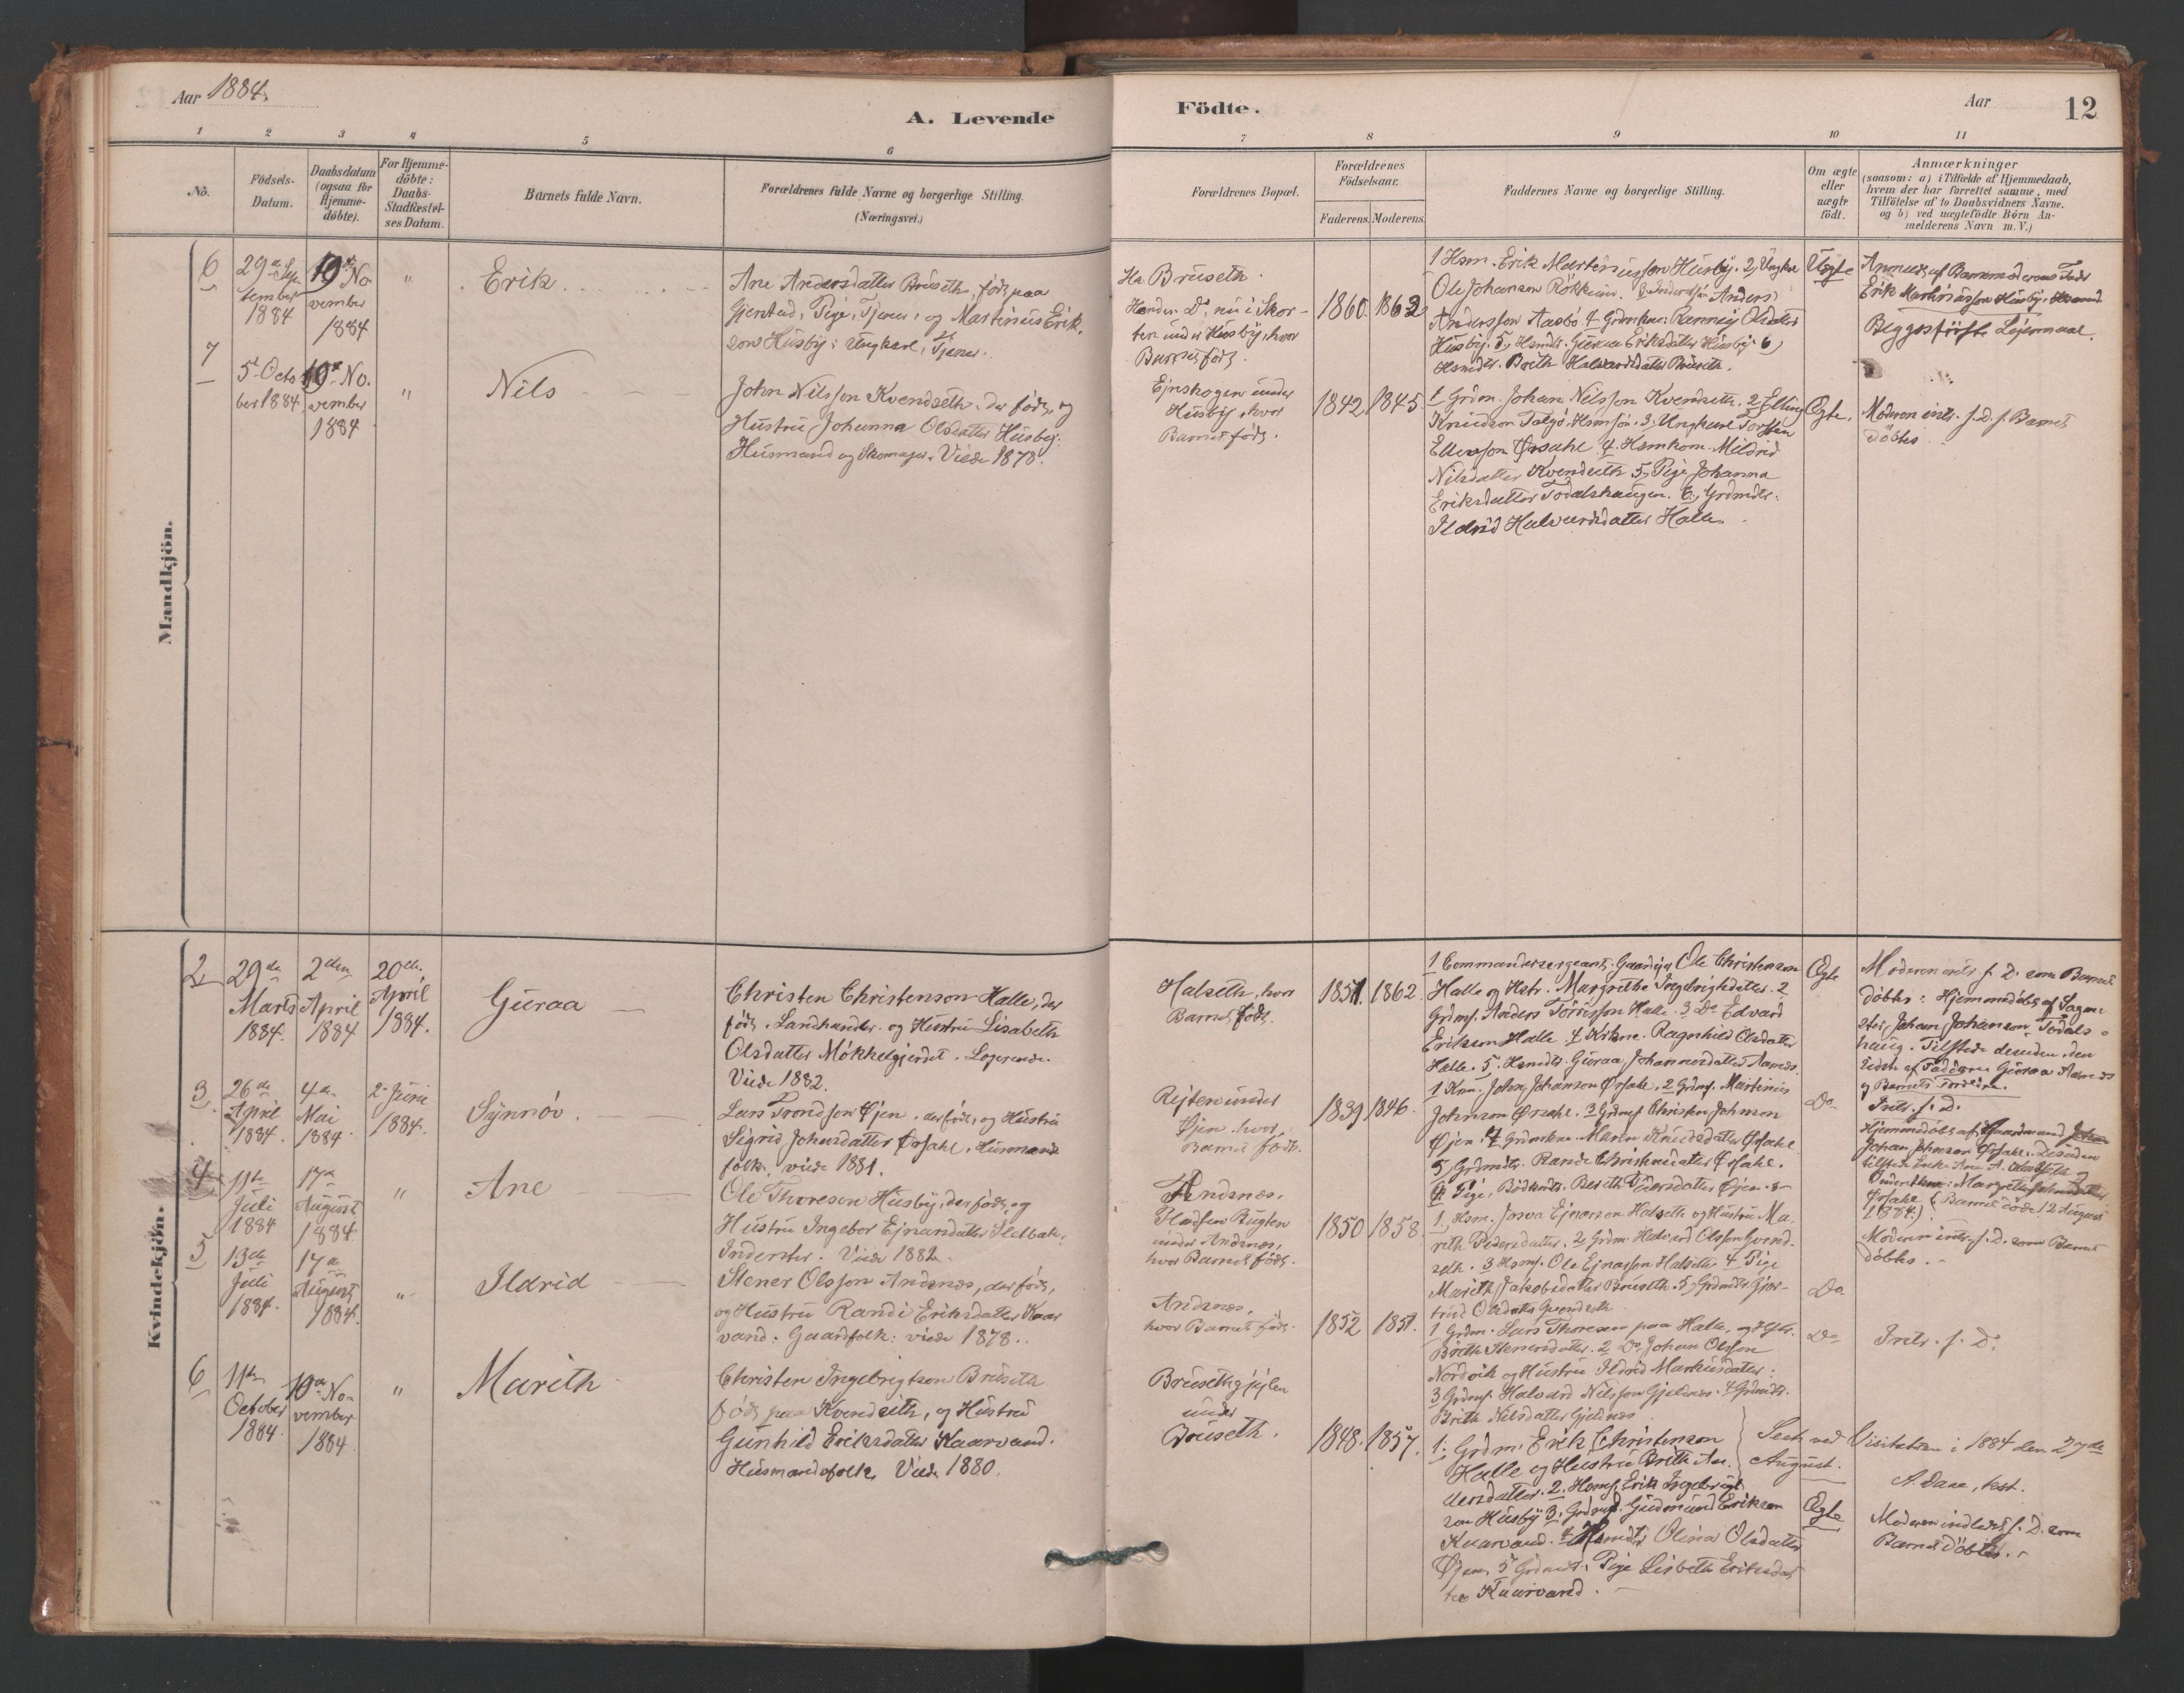 Aar 1884.
A. Levende
Födte.
Aar
12
1
2
3
4
5
6
7
8
9
10
11
No.
Födsels-
Datum.
Daabsdatum
(ogsaa for
Hjemme-
döbte).
For Hjemme-
döbte:
Daabs-
Stadfæstel-
ses Datum.
Barnets fulde Navn.
Forældrenes fulde Navne og borgerlige Stilling.
(Næringsvei.)
Forældrenes Bopæl.
Forældrenes
Födselsaar.
Faderens.
Moderens.
Faddernes Navne og borgerlige Stilling.
Om ægte
eller
uægte
födt.
Anmærkninger
(saasom: a) i Tilfælde af Hjemmedaab,
hvem der har forrettet samme, med
Tilföielse af to Daabsvidners Navne.
og b) ved uægtefödte Börn An-
melderens Navn m. V.)
Mandkjön.
6
29de Sep
tember
1884
19de No
vember
1884
"
Erik
Ane Andersdatter Brüseth, föds paa
Gjerstad, Pige, Tjener, og Martinus Erik.
son Hüsby: Ungkarl, Tjener.
Ha. Brüseth.
Handen Do, nu i Skor-
ten under Hüsby, hvor
Barnet föds.
1860.
1862
1 Hsm. Erik Martinusson Hüsby. 2, Ungkar
Ole Johanson Rökkum. Anders
Andersson Aasbö 4 Grdmkone: Ranney Olsdatter
Hüsby. 5, Hsmdtr. Guraa Eriksdatter Hüsby 6,
Hsmdtr. Brith Halvardsdatter Brüseth.
Uægte
Anmeldt af Barnemoderens Fader
Erik Martinusson Hüsby, Husmand
Begges förste Lejermaal.
7
5te Octo
ber 1884
19de No.
vember
1884
"
Nils
John Nilsson Kvendseth, der föds, og
Hustrü Johanna Olsdatter Hüsby:
Hüsmand og Skomager. Viede 1873.
Ejnskogen ünder
Hüsby, hvor
Barnet föds.
1842
1845.
1 Grdm. Johan Nilsson Kvendseth. 2 Elling
Knudson Talgö Hsmsön. 3, Ungkarl Torsten
Ellevson Ørsahl 4. Hsmkom. Mildrid
Nilsdatter Kvendseth 5, Pige Johanna
Eriksdatter Todalshaugen. 6, Grdmdtr:
Ildrid Halvardsdatter Halle.
Ægte.
Moderen intr. f. D. f. Barnet
döbtes
Kvindekjön.
2
29de
Marts
1884.
2den
April
1884
20de
April
1884.
Güraa
Christen Christenson Halle, der
föds. Landhandler og Hustrü Lisabeth
Olsdatter Mökkelgjerdet. Logerende.
Viede 1882.
Halseth, hvor
Barnet föds.
1851.
1862
1 Commandersergeant, Gaardejer Ole Christenson
Halle og Hstr. Margrethe Ingebrigtsdatter. 2
Grdms. Anders Törrisson Halle. 3 Do Edvard
Erikson Halle. 4 Krkne. Ragnhild Olsdatter
Halle. 5, Hsmdtr. Güraa Johannesdatter Aarnes.
Ægte
Moderen intr. f. D. som Barnet
döbtes: Hjemmedöbt af Sagme
ster, Johan Johanson Todals
haug. Tilstede desuden den
Fadderne Güraa Aarnes
og Barnets Forældre.
3
26de
April
1884.
4de
Mai
1884
2 Jüni
1884.
Synnöv
Lars Trondson Øjen, der föds, og Hüstru
Sigrid Johnsdatter Ørsahl, Hüsmands
folk, viede 1881.
Rejten under
Øjen, hvor
Barnet föds.
1839
1846.
1 Krm. John Johanson Ørsahl, 2 Grdms. Martinus
Johnson Ørsahl. 3 Grdms Christen Johnson
Øjen. 4 Grdmskone. Maren Knudsdatter Ørsahl
5, Grdmdtr. Rande Christensdatter Ørsahl.
Do
Intr. f. D.
Hjemmedöbt af Gaardmand
Johan Johnson Ørsahl. Desuden
1884.) (Barnet döde 12 August
4
11te
Jüli
1884
17de
August
1884.
"
Ane
Ole Thoreson Hüsby, der föds, og
Hüstrü Ingebor Ejnarsdatter Sletbak,
Inderster. Viede 1882.
Andsnæs,
Pladsen Bugten
under Andsnæs,
hvor Barnet föds.
1850
1858.
1, Hsm. Ejnarson Halseth og Hustru Ma-
rith Pedersdatter. 2 Grdm. Halvard Olsson Gvend-
seth. 3 Hsms. Ole Ejnarson Halseth 4 Pige
Marith Jakobsdatter Brüseth. 5, Grdmdtr Gjer-
trud Olsdatter Gvendseth
Do
Moderen intr. f. D. som Barnet
döbtes.
5
13de
Jüli
1884.
17de
August
1884.
"
Ildrid
Stener Olsson Andsnæs, der föds,
og Hüstrü Randi Eriksdatter Kaar
vand: Gaardfolk: viede 1878.
Andsnæs,
hvor Barnet föds.
1852
1851.
1 Grdm. Lars Thoresen paa Halle, og Hstr.
Brith Stenersdatter. 2 Do Johan Olsson
Nordvik og Hustrü Ildrid Markusdatter:
3 Grdms. Halvard Nilsson Gjeldnes. 4 Grdmdtr.
Brith Nilsdatter Gjeldnes
Do
Intr. f. D.
6
11te
October
1884.
10de No
vember
1884
"
Marith
Christen Ingebrigtson Brüseth
föds paa Kvendseth, og Hüstrü
Günhild Eriksdatter Kaarvand.
Hüsmandsfolk. Viede 1880.
Brüsethgjejlen
under
Brüseth.
1848.
1857.
1: Grdm. Erik Christenson
Halle og Hustru Brith An
dersdatter. 2. Hsms. Erik Ingebrigt
son Hüsby 3: Grdms. Gudmund Erikson
Kaarvand. 4 Hsmdtr. Olina Olsdatter
Øjen, 5 Grdmdt: Pige Lisbeth Eriksdat
ter Kaarvand.
Seet ved Visitatsen i 1884 den 27de
August.
A. Daae, kst.
Ægte
Moderen indledt f. D. som
Barnet döbtes.